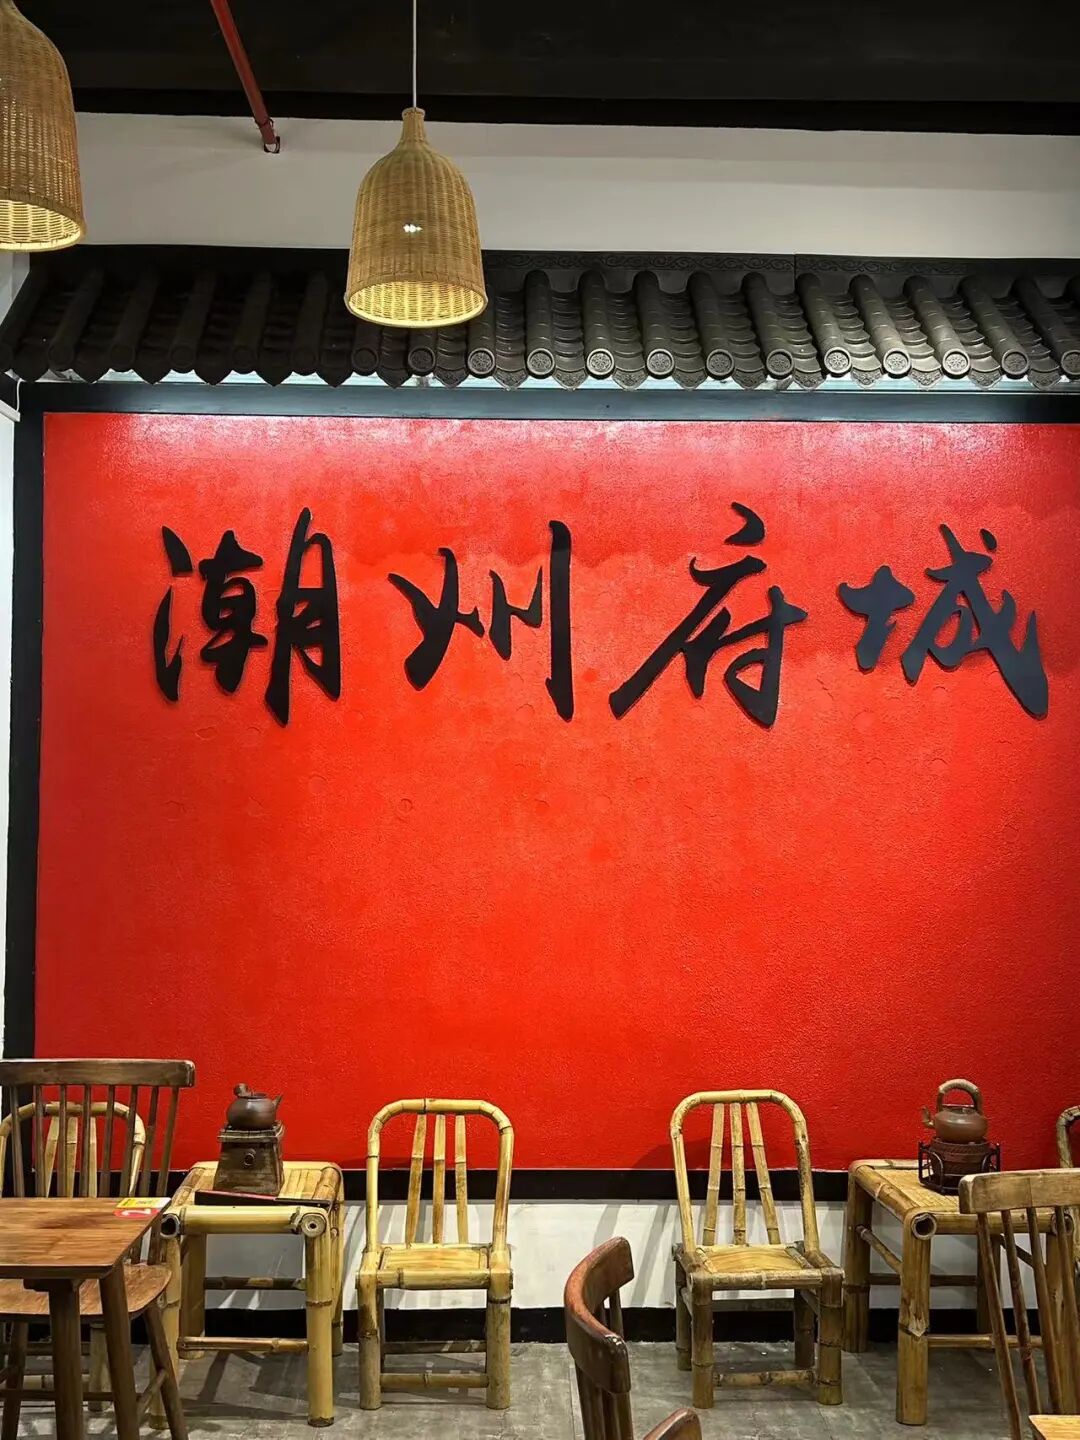 潮州府城
2